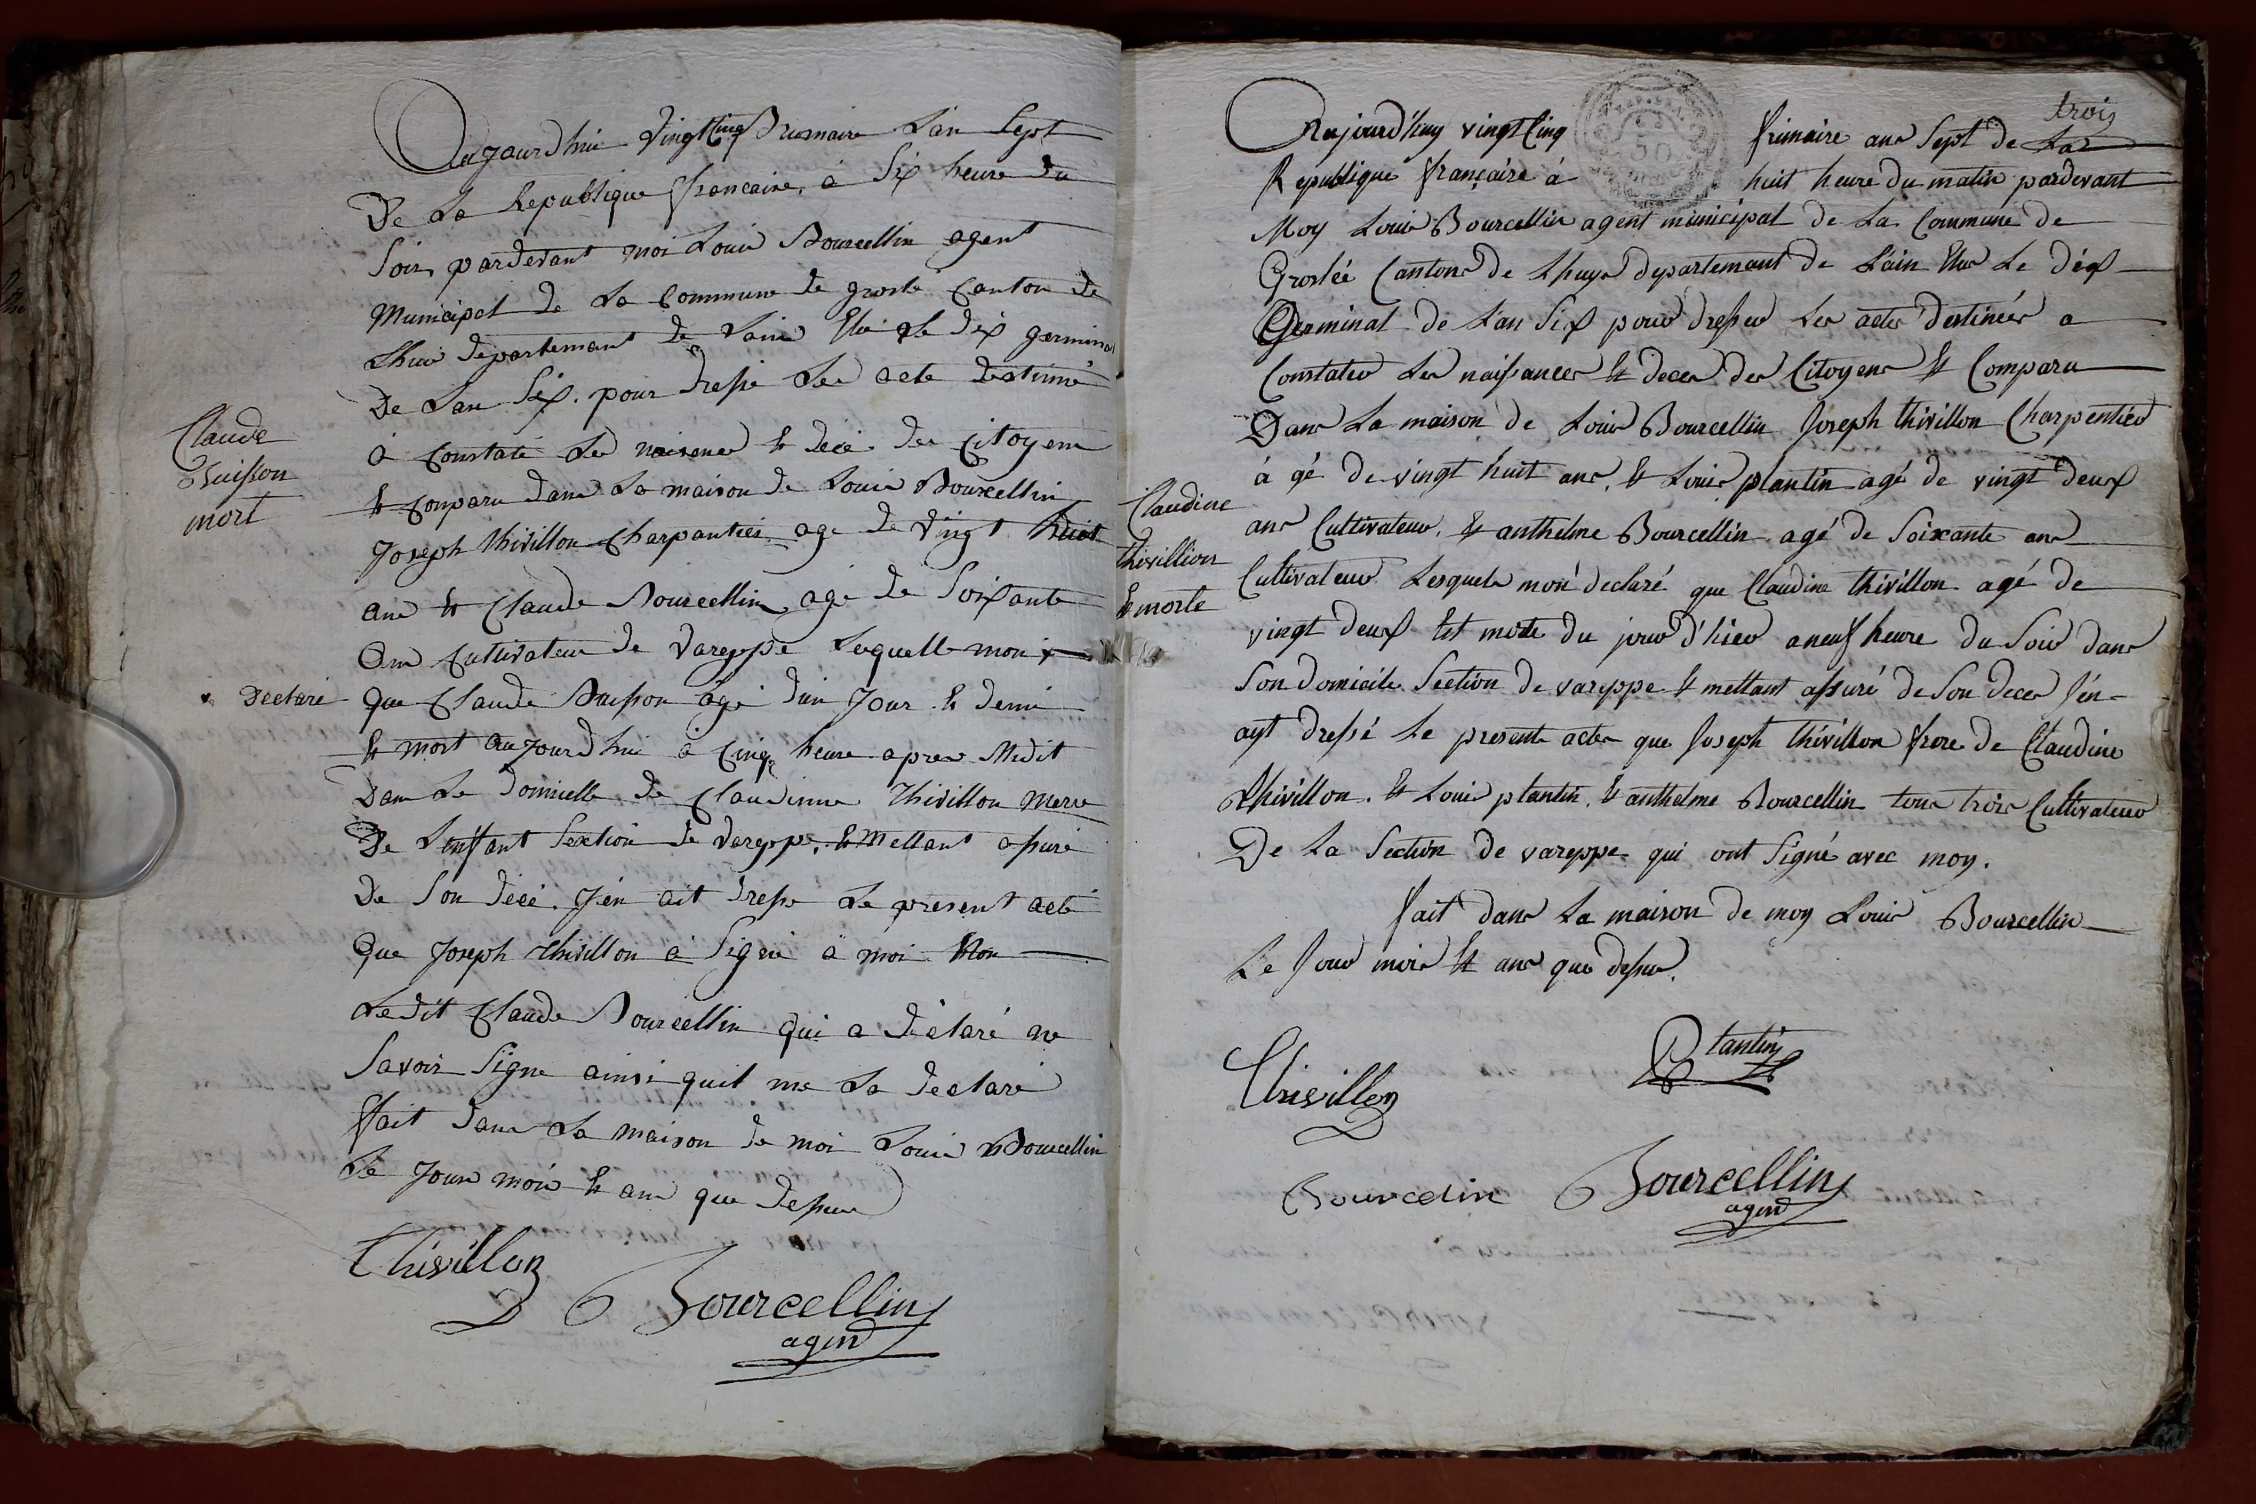 Aujourdhui vingt Cinq Brumaire Lan Sept
De La Republique francaire, à Six heure du
Soir, pardevant moi Louis Bourcellin agent
Municipal de La Commune de groslé Canton de
Lhuis departemant de Lain Elu Le dix germinal
De Lan Six. pour dressé Les acte destiné
à Constaté Les naisence et décé des Citoyens
et Conparu dans La maison de Louis Bourcellin
Joseph thivillon Charpantier agé de vingt huit
ans et Claude Bourcellin agé de Soixante
Ans Cultivateur de vareppe Lesquelle mon x
x Declaré
que Claude Buisson âgé d'un Jour et demi
et mort aujourdhui à Cinq heure apres Midit
Dans Le domicille de Claudinne Thivillon Merre
De Lenffant Section de vareppe, et Mettant assuré
De Son décé. J'en ait dresse Le present acte
Que Joseph Thivillon à Signé à moi Non
Ledit Claude Bourcellin qui a déclaré ne
Savoir Signe ainsi quil me La declaré
ffait dans La maison de moi Louis Bourcellin
Le Jour mois et ans que dessus
Claude
Buisson
mort
Thivillon
Bourcellin
agent
trois
Aujourd'huy vingt Cinq frimaire ans Sept de La
Republique françaire à huit heure du matin pardevant
Moy Louis Bourcellin agent municipal de La Commune de
Groslée Cantons de Lhuys departemant de Lain Elus Le dix
Germinal de Lan Six pour dresser Les actes destinées a
Constater Les naissances et deces des Citoyens et Comparu
Dans La maison de Louis Bourcellin Joseph thivillon Charpentier
à gé de vingt huit ans. et Louis plantin agé de vingt deux
ans Cultivateur. et anthelme Bourcellin agé de Soixante ans
Cultivateur Lesquels mon declaré que Claudine thivillon agé de
vingt deux Est morte du jour d'hier a neuf heure du Soir dans
Son domicile Section de vareppe et mettant assuré de Son deces J'en
ayt dressé Le presente actes que Joseph thivillon frere de Claudine
thivillon. et Louis plantin. et anthelme Bourcellin tous trois Cultivateur
De La Section de vareppe qui ont Signé avec moy.
fait dans La maison de moy Louis Bourcellin
Le Jour mois et ans que dessus.
Claudine
thivillion
et morte
Thivillon
Plantin
Bourcelin
Bourcellin
agent